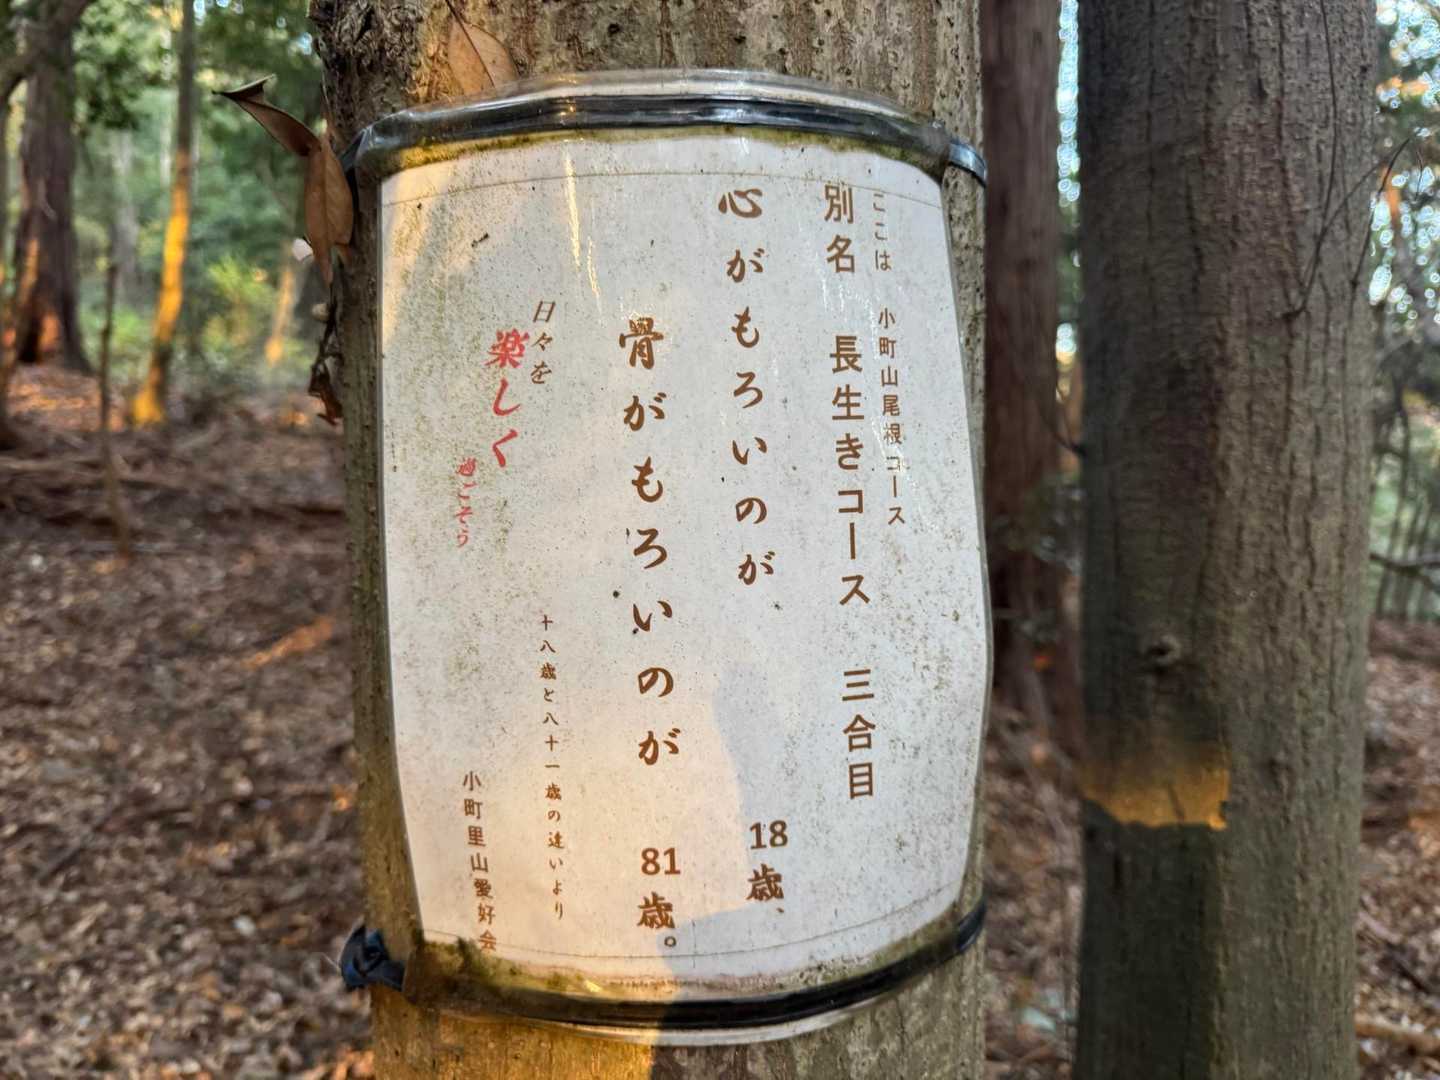 ここは 小町山尾根コース
別名 長生きコース 三合目
心がもろいのが 18歳、
骨がもろいのが 81歳。
十八歳と八十一歳の違いより
日々を
楽しく
過ごそう
小町里山愛好会